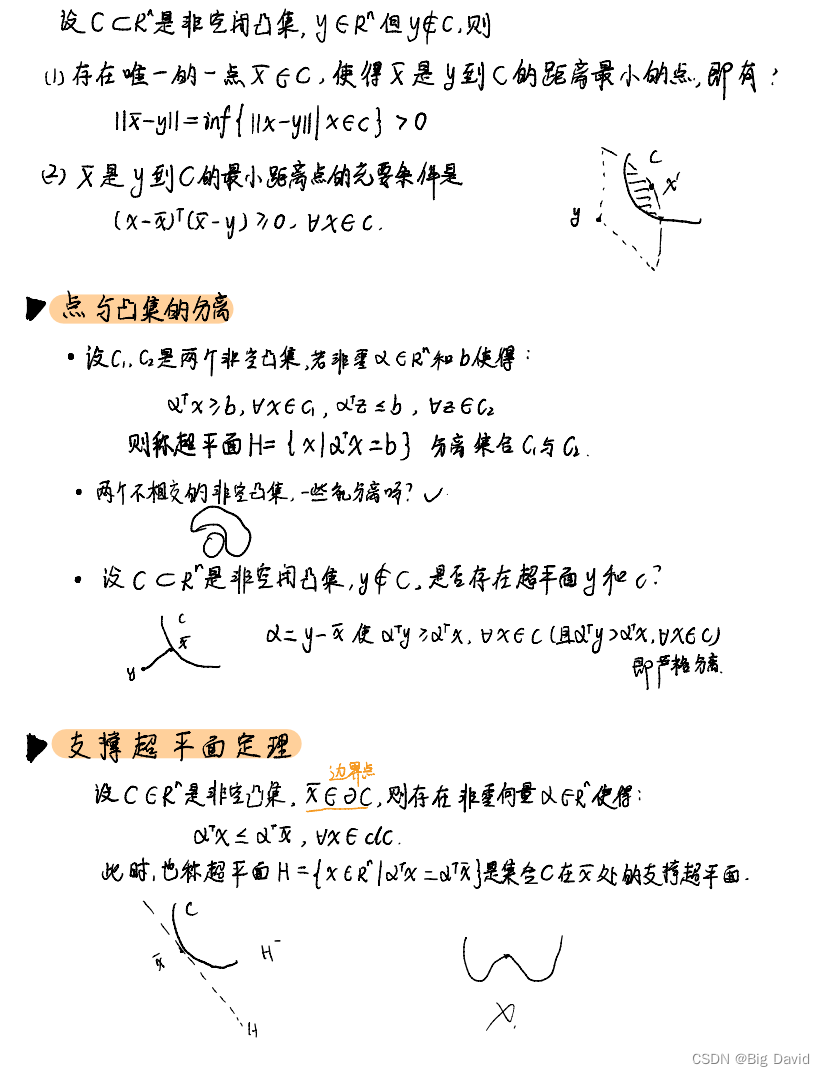 设C⊂Rⁿ是非空闭凸集, y∈Rⁿ但y∉C,则
(1) 存在唯一的一点x̄∈C, 使得x̄是y到C的距离最小的点,即有:
||x̄-y||=inf{||x-y|| | x∈C}>0
(2) x̄是y到C的最小距离点的充要条件是
(x-x̄)ᵀ(x̄-y)≥0, ∀x∈C.
C
x'
y
点与凸集的分离
• 设C₁, C₂是两个非空凸集,若非零α∈Rⁿ和b使得:
αᵀx≥b, ∀x∈C₁, αᵀz≤b, ∀z∈C₂
则称超平面H={x|αᵀx=b} 分离集合C₁与C₂.
• 两个不相交的非空凸集,一些分离吗? ✓
• 设C⊂Rⁿ是非空闭凸集, y∉C, 是否存在超平面y和C?
C
x̄
y
α=y-x̄ 使αᵀy≥αᵀx, ∀x∈C (且αᵀy>αᵀx, ∀x∈C)
即严格分离.
支撑超平面定理
边界点
设C∈Rⁿ是非空凸集, x̄∈∂C, 则存在非零向量α∈Rⁿ使得:
αᵀx≤αᵀx̄, ∀x∈clC.
此时,也称超平面H={x∈Rⁿ|αᵀx=αᵀx̄}是集合C在x̄处的支撑超平面.
C
x̄
H⁻
H
X.
CSDN @Big David